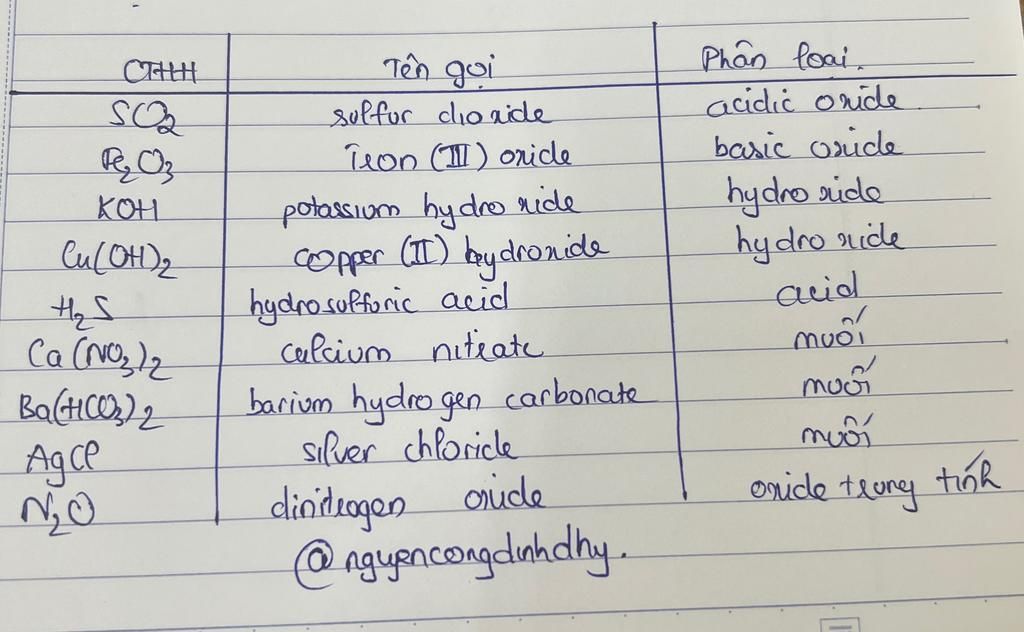 CTHH Tên gọi Phân loại.
SO2 sulfur dioxide acidic oxide
Fe2O3 iron (III) oxide basic oxide
KOH potassium hydroxide hydroxide
Cu(OH)2 copper (II) hydroxide hydroxide
H2S hydrosulfuric acid acid
Ca(NO3)2 calcium nitrate muối
Ba(HCO3)2 barium hydrogen carbonate muối
AgCl silver chloride muối
N2O dinitrogen oxide oxide trung tính
@nguyencongdinhdhy.